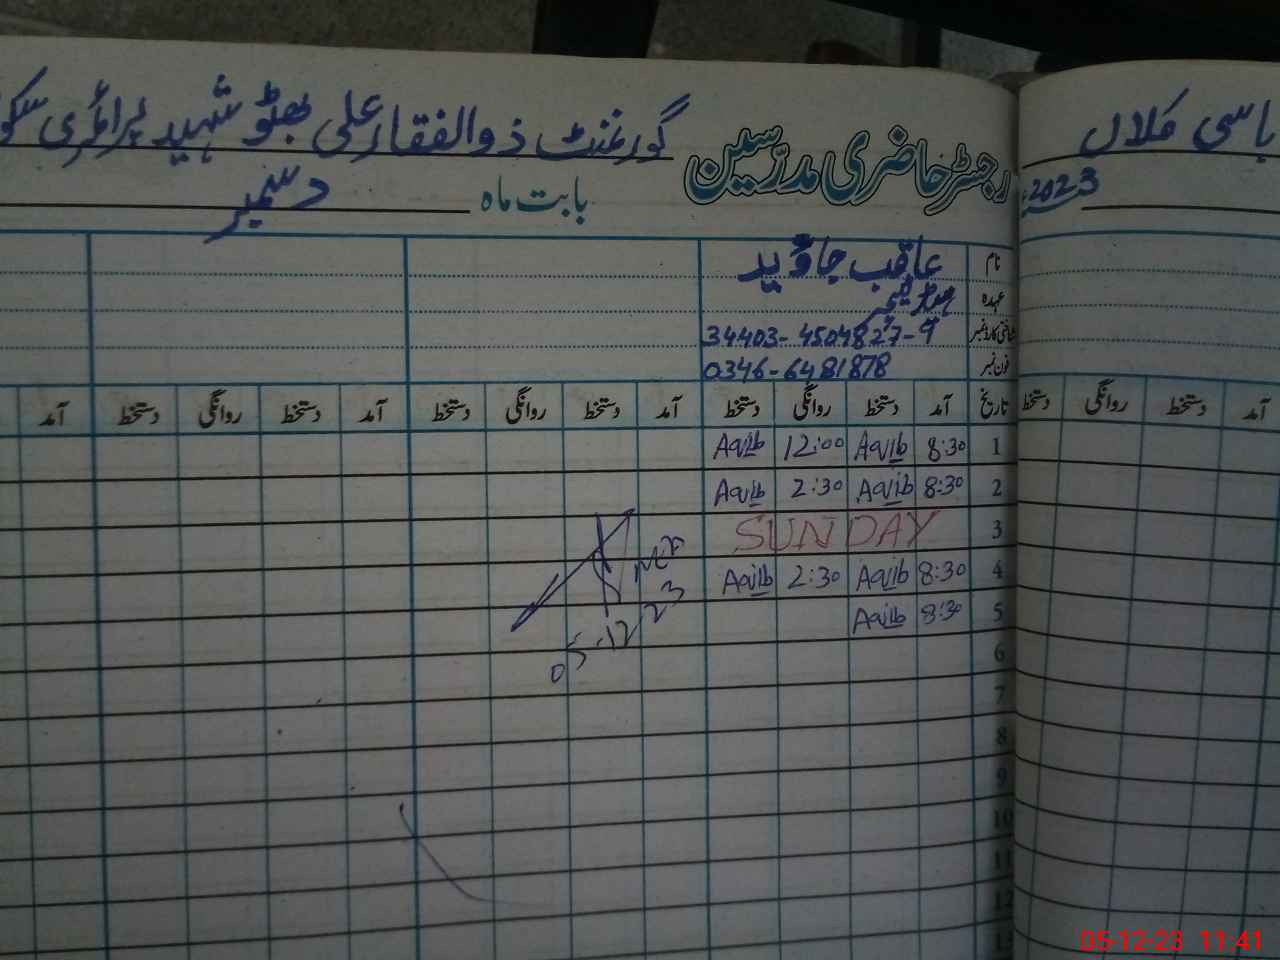 رجسٹر حاضری مدرّسین گورنمنٹ ذوالفقار علی بھٹو شہید پرائمری سکول
باسی کلاں
بابت ماہ دسمبر
2023
نام عاقب جاوید
عہدہ ہیڈ ٹیچر
شناختی کارڈ نمبر 34403-4504827-9
فون نمبر 0346-6481878
تاریخ آمد دستخط روانگی دستخط آمد دستخط روانگی دستخط آمد دستخط روانگی دستخط آمد
آمد دستخط روانگی دستخط
1 8:30 Aqib 12:00 Aqib
2 8:30 Aqib 2:30 Aqib
3 SUNDAY
4 8:30 Aqib 2:30 Aqib
5 8:30 Aqib
05-12-23
6
7
8
9
10
11
12
13
05-12-23 11:41